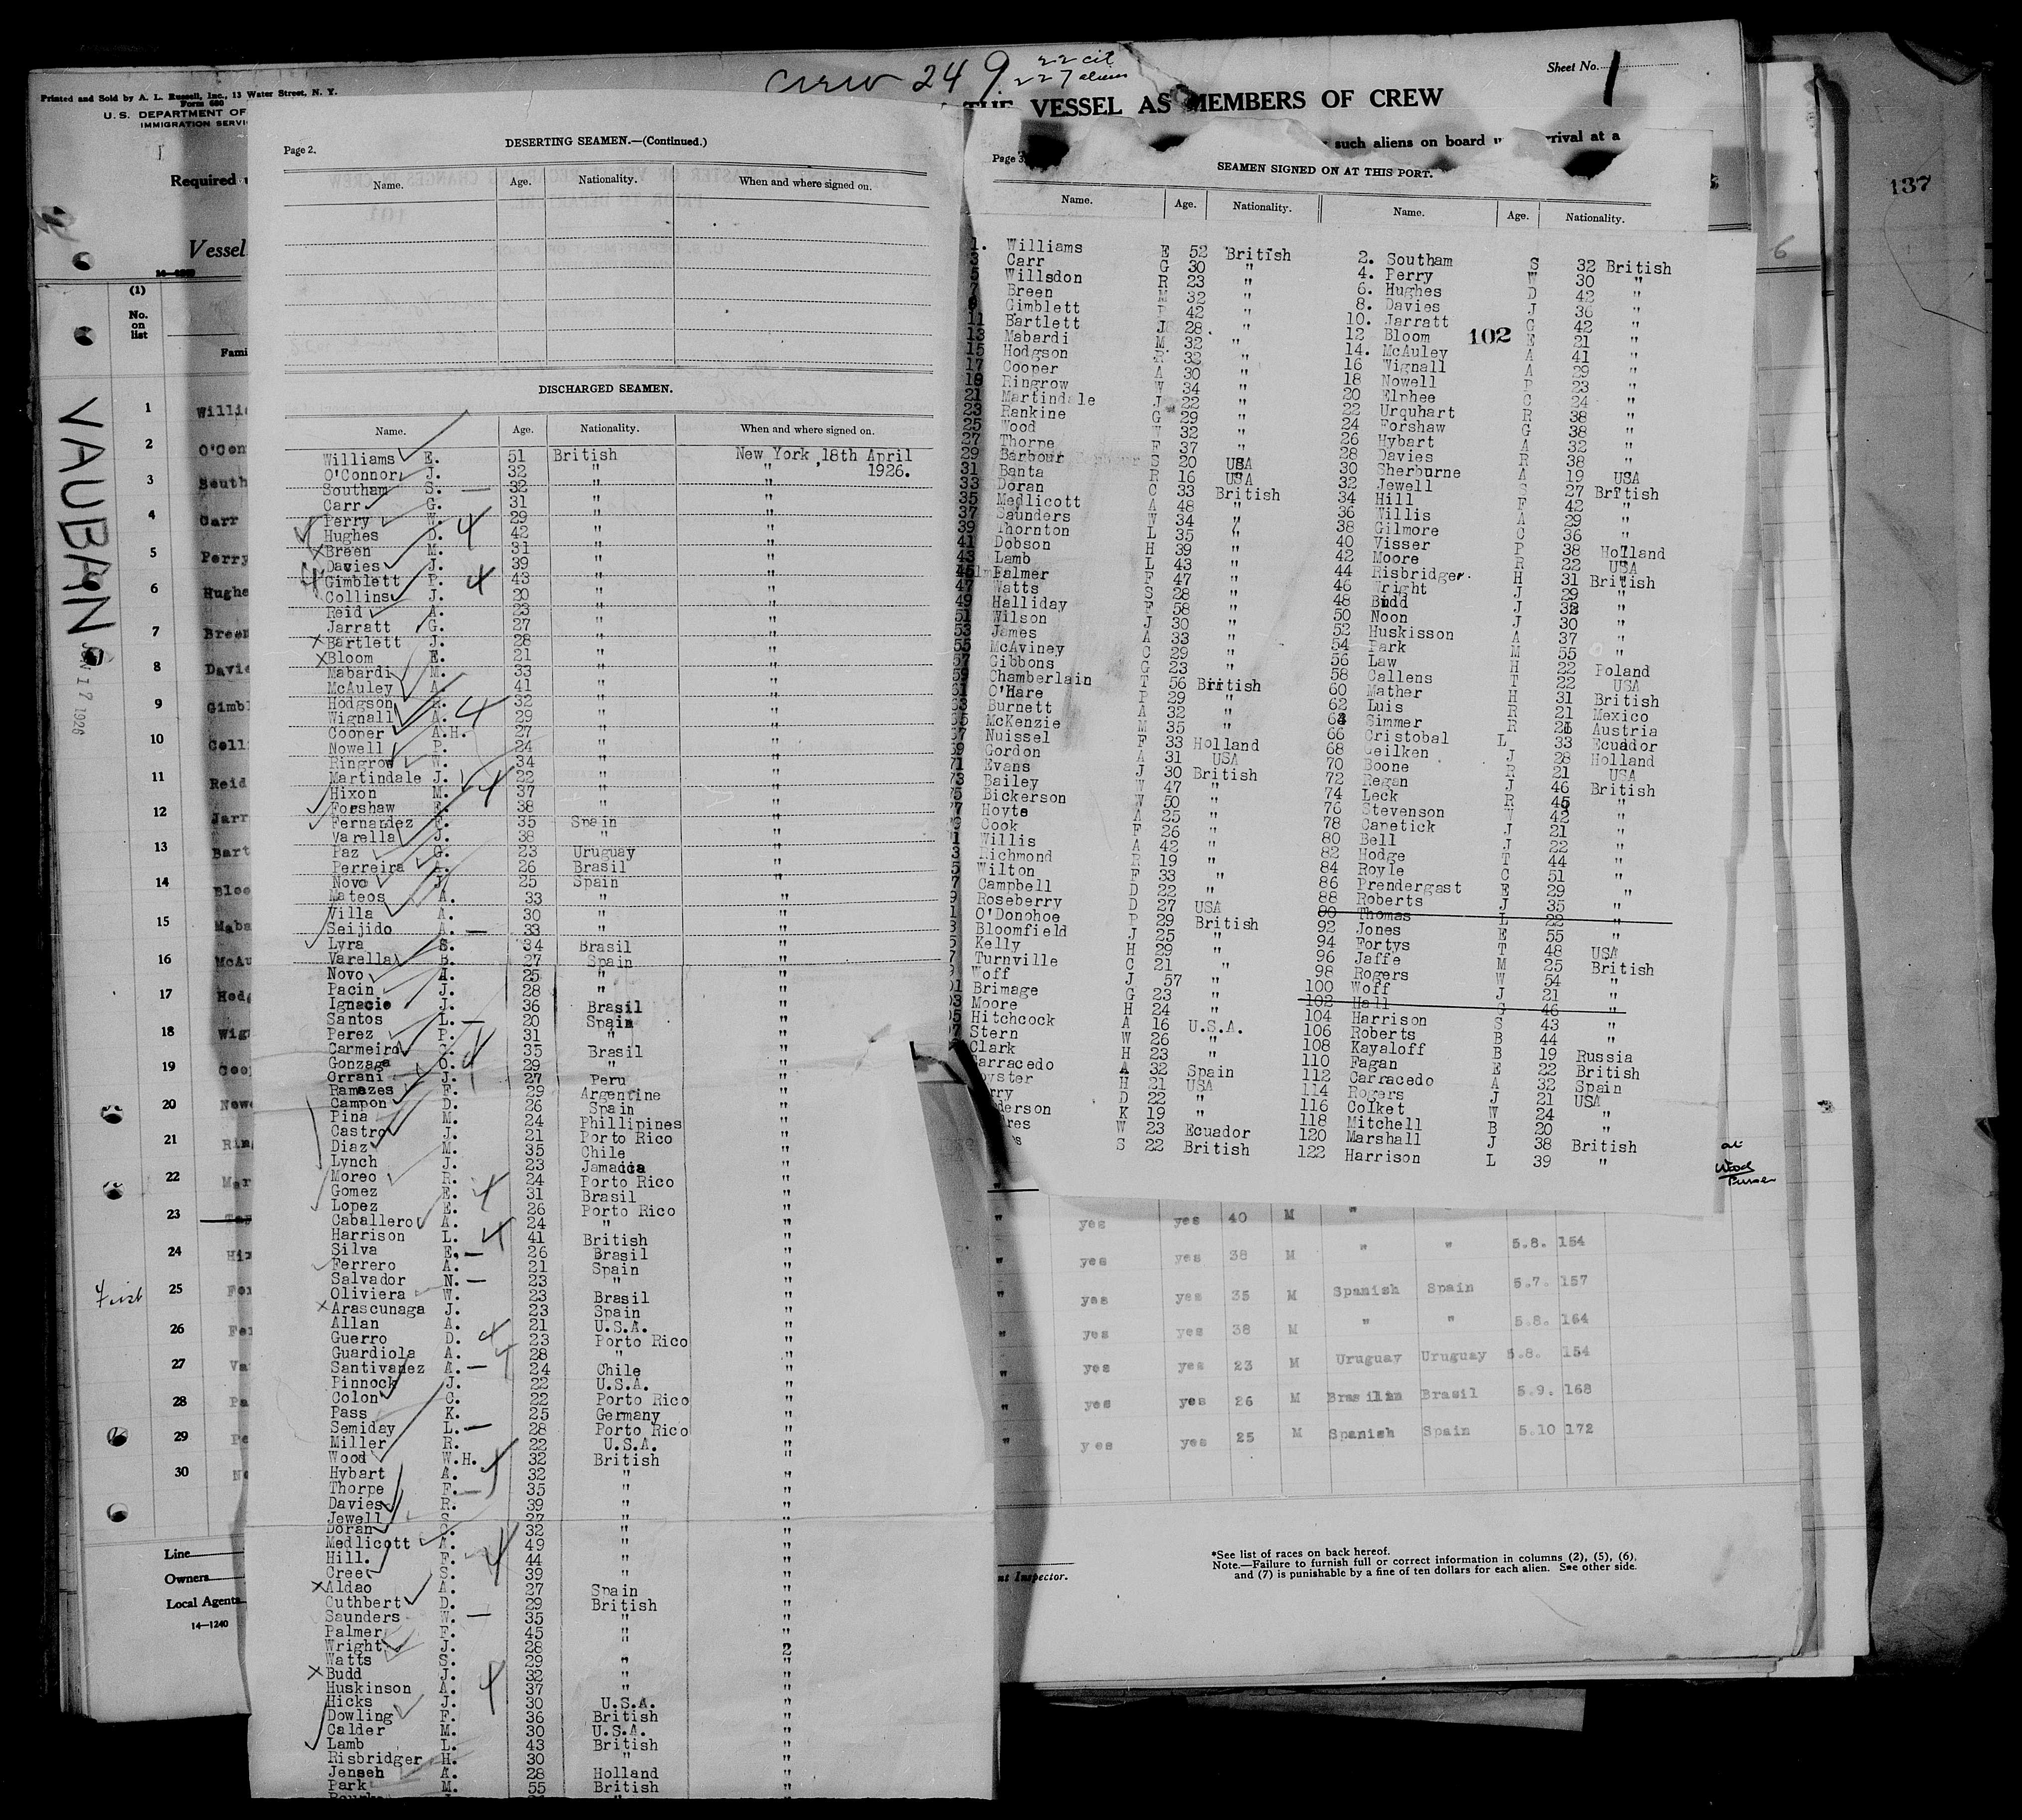 crew 249 22 cit
227 aliens
Sheet No. 1
Printed and Sold by A. L. Russell, Inc., 13 Water Street, N. Y.
Form 680
U. S. DEPARTMENT OF
IMMIGRATION SERVI
THE VESSEL AS MEMBERS OF CREW
such aliens on board
rrival at a
Required u
Vessel
137
6
VAUBAN
17 1926
(1)
No. on list
Fami
1 Willia
2 O'Con
3 South
4 Carr
5 Perry
6 Hughe
7 Breen
8 Davie
9 Gimbl
10 Colli
11 Reid
12 Jarr
13 Bart
14 Bloo
15 Maba
16 McAu
17 Hodg
18 Wig
19 Coop
20 Nowe
21 Rin
22 Mar
23
24 Hix
25 For
26 Fer
27 Va
28 Pa
29 Pe
30 No
First
Line
Owners
Local Agents
14—1240
Page 2.
DESERTING SEAMEN.—(Continued.)
Name. Age. Nationality. When and where signed on.
DISCHARGED SEAMEN.
Name. Age. Nationality. When and where signed on.
Williams E. 51 British New York ,18th April
O'Connor J. 32 " " 1926.
Southam S. 32 " "
Carr G. 31 " "
Perry W. 29 " "
Hughes D. 42 " "
Breen M. 31 " "
Davies J. 39 " "
Gimblett P. 43 " "
Collins J. 20 " "
Reid A. 23 " "
Jarratt G. 27 " "
Bartlett J. 28 " "
Bloom E. 21 " "
Mabardi M. 33 " "
McAuley A. 41 " "
Hodgson R. 32 " "
Wignall A. 29 " "
Cooper A.H. 27 " "
Nowell P. 24 " "
Ringrow W. 34 " "
Martindale J. 22 " "
Hixon M. 37 " "
Forshaw E. 38 " "
Fernandez F. 35 Spain "
Varella J. 38 " "
Paz G. 23 Uruguay "
Perreira A. 26 Brasil "
Novo J. 25 Spain "
Mateos A. 33 " "
Villa A. 30 " "
Seijido A. 33 " "
Lyra S. 34 Brasil "
Varella B. 27 Spain "
Novo A. 25 " "
Pacin J. 28 " "
Ignacio J. 36 Brasil "
Santos L. 20 Spain "
Perez P. 31 " "
Carmeiro C. 35 Brasil "
Gonzaga O. 29 " "
Orrani J. 27 Peru "
Ramazes F. 29 Argentine "
Campon D. 26 Spain "
Pina M. 24 Phillipines "
Castro J. 21 Porto Rico "
Diaz M. 35 Chile "
Lynch J. 23 Jamacia "
Moreo R. 24 Porto Rico "
Gomez E. 31 Brasil "
Lopez E. 26 Porto Rico "
Caballero A. 24 " "
Harrison L. 41 British "
Silva E. 26 Brasil "
Ferrero A. 21 Spain "
Salvador N. 23 " "
Oliviera W. 23 Brasil "
Arascunaga J. 23 Spain "
Allan A. 21 U.S.A. "
Guerro D. 23 Porto Rico "
Guardiola A. 28 " "
Santivanez A. 24 Chile "
Pinnock J. 22 U.S.A. "
Colon C. 22 Porto Rico "
Pass K. 25 Germany "
Semiday L. 28 Porto Rico "
Miller R. 22 U.S.A. "
Wood W.H. 32 British "
Hybart A. 32 " "
Thorpe F. 35 " "
Davies R. 39 " "
Jewell S. 27 " "
Doran C. 32 " "
Medlicott A. 49 " "
Hill. F. 44 " "
Cree S. 39 " "
Aldao A. 27 Spain "
Cuthbert D. 29 British "
Saunders W. 35 " "
Palmer F. 45 " "
Wright J. 28 " 2
Watts S. 29 " "
Budd J. 32 " "
Huskinson A. 37 " "
Hicks J. 30 U.S.A. "
Dowling F. 36 British "
Calder M. 30 U.S.A. "
Lamb L. 43 British "
Risbridger H. 30 " "
Jensen A. 28 Holland "
Park M. 55 British "
Page 3.
SEAMEN SIGNED ON AT THIS PORT.
Name. Age. Nationality. Name. Age. Nationality.
102
1. Williams E 52 British 2. Southam S 32 British
3 Carr G 30 " 4. Perry W 30 "
5 Willsdon R 23 " 6. Hughes D 42 "
7 Breen M 32 " 8. Davies J 36 "
9 Gimblett P 42 " 10. Jarratt G 42 "
11 Bartlett J 28 " 12 Bloom E 21 "
13 Mabardi M 32 " 14. McAuley A 41 "
15 Hodgson R 32 " 16 Wignall A 29 "
17 Cooper A 30 " 18 Nowell P 23 "
19 Ringrow W 34 " 20 Elphee C 24 "
21 Martindale J 22 " 22 Urquhart R 38 "
23 Rankine G 29 " 24 Forshaw G 38 "
25 Wood W 32 " 26 Hybart A 32 "
27 Thorpe F 37 " 28 Davies R 38 "
29 Barbour S 20 USA 30 Sherburne A 19 USA
31 Banta R 16 USA 32 Jewell S 27 British
33 Doran C 33 British 34 Hill F 42 "
35 Medlicott A 48 " 36 Willis A 29 "
37 Saunders W 34 " 38 Gilmore C 36 "
39 Thornton L 35 " 40 Visser P 38 Holland
41 Dobson H 39 " 42 Moore R 22 USA
43 Lamb L 43 " 44 Risbridger. H 31 British
45 Palmer F 47 " 46 Wright J 29 "
47 Watts S 28 " 48 Budd J 32 "
49 Halliday F 58 " 50 Noon J 30 "
51 Wilson J 30 " 52 Huskisson A 37 "
53 James A 33 " 54 Park M 55 "
55 McAviney C 29 " 56 Law H 22 Poland
57 Gibbons G 23 " 58 Callens T 22 USA
59 Chamberlain T 56 British 60 Mather H 31 British
61 O'Hare P 29 " 62 Luis R 21 Mexico
63 Burnett A 32 " 64 Simmer R 21 Austria
65 McKenzie M 35 " 66 Cristobal L 33 Ecuador
67 Nuissel F 33 Holland 68 Ceilken J 28 Holland
69 Gordon A 31 USA 70 Boone R 21 USA
71 Evans J 30 British 72 Regan J 46 British
73 Bailey W 47 " 74 Leck R 45 "
75 Bickerson W 50 " 76 Stevenson W 42 "
77 Hoyte A 25 " 78 Capetick J 21 "
79 Cook F 26 " 80 Bell J 22 "
1 Willis A 42 " 82 Hodge T 44 "
3 Richmond R 19 " 84 Royle C 51 "
5 Wilton F 33 " 86 Prendergast E 29 "
7 Campbell D 22 " 88 Roberts J 35 "
9 Roseberry D 27 USA 90 Thomas L 22 "
1 O'Donohoe P 29 British 92 Jones E 55 "
3 Bloomfield J 25 " 94 Fortys T 48 USA
5 Kelly H 29 " 96 Jaffe M 25 British
7 Turnville C 21 " 98 Rogers W 54 "
9 Woff J 57 " 100 Woff J 21 "
01 Brimage G 23 " 102 Hall G 46 "
03 Moore H 24 " 104 Harrison S 43 "
05 Hitchcock A 16 U.S.A. 106 Roberts B 44 "
7 Stern W 26 " 108 Kayaloff B 19 Russia
Clark H 23 " 110 Fagan E 22 British
arracedo A 32 Spain 112 Carracedo A 32 Spain
oyster H 21 USA 114 Rogers J 21 USA
rry D 22 " 116 Colket W 24 "
derson K 19 " 118 Mitchell B 20 "
res W 23 Ecuador 120 Marshall J 38 British
s S 22 British 122 Harrison L 39 "
" yes yes 40 M "
" yes yes 38 M " " 5.8. 154
" yes yes 35 M Spanish Spain 5.7. 157
" yes yes 38 M " " 5.8. 164
" yes yes 23 M Uruguay Uruguay 5.8. 154
" yes yes 26 M Brasilian Brasil 5.9. 168
" yes yes 25 M Spanish Spain 5.10 172
nt Inspector.
*See list of races on back hereof.
Note.—Failure to furnish full or correct information in columns (2), (5), (6),
and (7) is punishable by a fine of ten dollars for each alien. See other side.